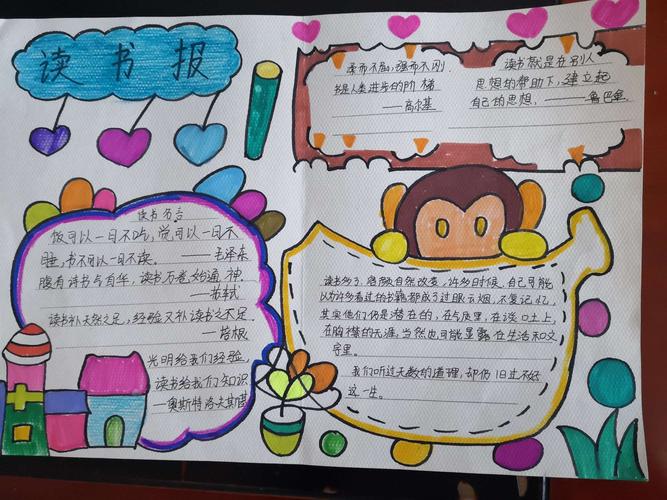 读书报
读书名言
饭可以一日不吃，觉可以一日不
睡，书不可以一日不读。——毛泽东
腹有诗书气自华，读书万卷始通神
——苏轼
读书补天然之足，经验又补读书之不足
——培根
光明给我们经验，
读书给我们知识
—奥斯特洛夫斯基
柔而不屈，强而不刚
书是人类进步的阶梯
——高尔基
读书就是在别人
思想的帮助下，建立起
自己的思想。——鲁巴金
读书多了，容颜自然改变，许多时候，自己可能
以为许多看过的书籍都成了过眼云烟，不复记忆，
其实他们仍是潜在的，在气质里，在谈吐上，
在胸襟的无涯，当然也可能显露在生活和文
字里。
我们听过无数的道理，却仍旧过不好
这一生。